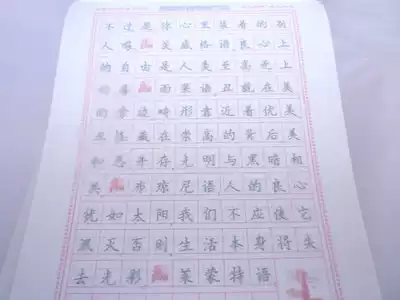 不过是你心里装着的别
人 格语,良心上
的自由是人类至高无上
的 雨果语,丑就在美
的旁边畸形靠近着优美
丑怪藏在崇高的背后美
和恶并存,光明与黑暗相
共,布琼尼语人的良心
犹如太阳,我们不应使它
熄灭否则,生活本身将失
去光彩 莱蒙特语